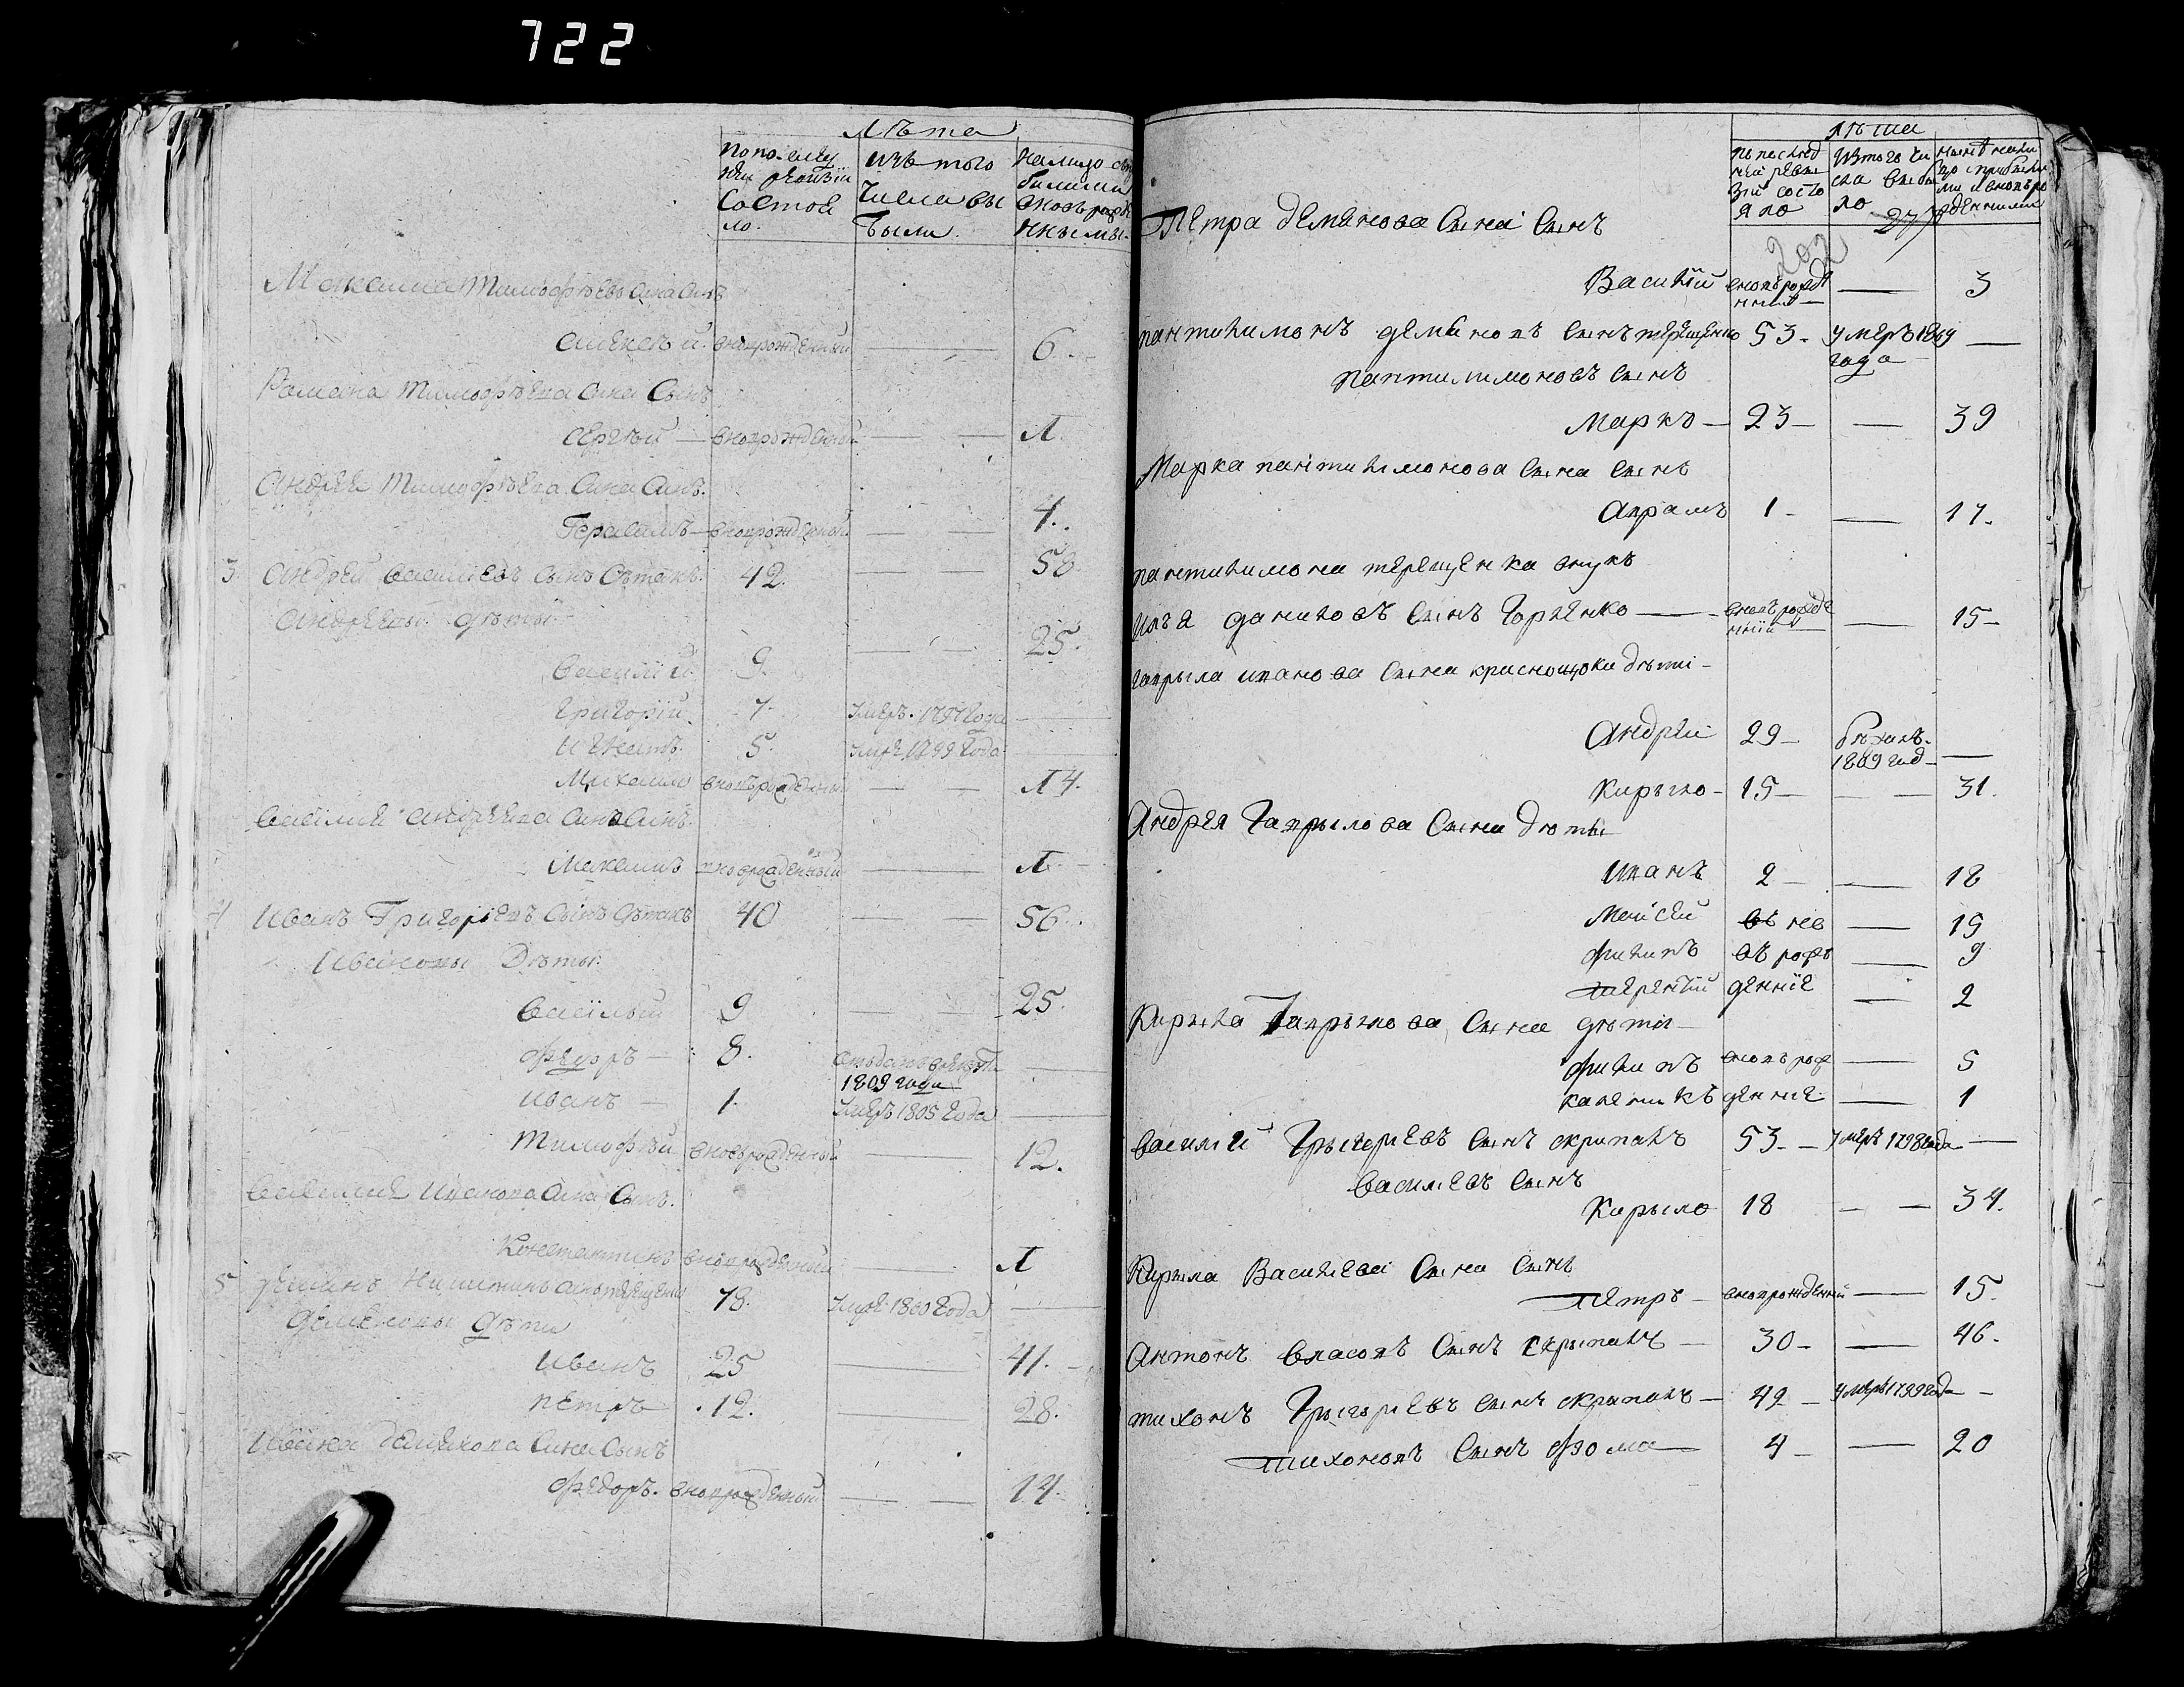 722
Лѣта
по послѣд
ней ревизіи
Состоя
ло.
изъ того
числа вы
были.
на лицо съ
былыми
вновь рожде
нными.
Максима Тимофѣева сина синъ
Алексѣй. внопрожденный — — 6.
Рамана Тимофѣева сина Сынъ
Сергѣй — внопрожденной — — 1.
Андрея Тимофѣева Сина Синъ.
Герасимъ — внопрожденной — — 4.
3. Андрей Василіевъ Сынъ 42. — — 58.
Андрѣевы дѣты
Василій. 9. — — 25.
Григорій. 7. Умеръ. 1797 года —
Игнатъ. 5. Умре 1799 года
Михаило вновърожденный — — 14.
Василия Андрѣева Сина Синъ.
Максимъ внов рожденный — 1 —
4 Иванъ Григоріевъ Сынъ 40 — — 56.
Ивановы Дѣты.
Василій 9 — — 25.
Федоръ — 8.
1809 года —
Иванъ — 1. Умеръ 1805 года —
Тимофѣй вновърожденный — 12.
Василия Иванова Сина Сынъ.
Константинъ вновърожденный — 1
5 Демянъ Никитинъ 78. Умре 1800 года —
Демяновы дѣти
Иванъ 25 — 41. —
Петръ 12. — 28.
Ивана Демянова Сина Сынъ
Федоръ. вновърожденный — — 14.
Лѣта
по послѣд
ней реви
зіи состо
яло
изътого чи
сла выбы
ло
нынѣ нали
цо съ прибылы
ми и вновъро
жденными
277
202
Петра демянова Сына Сынъ
Василій вновърожде
нный — — 3
пантилимонъ демяновъ сынъ терещенко 53 — умеръ 1809 —
года
пантилимоновъ Сынъ
Марко — 23 — — 39
Марка пантилимонова Сына Сынъ
Аврамъ 1 — — 17.
пантилимона терещенка внукъ
Илья даниловъ Сынъ Горленко — вновърожде
нній — — 15 —
гаврыла иванова Сына краснощока дѣти —
Андрей 29 — бѣжалъ.
1809 год — —
Кирыло — 15 — — — 31.
Андрея Гаврылова Сына дѣты
Иванъ 2 — — 18
Моисей вь нов — 19
Филипъ въ рож — 9
Терентій денніе — 2
Кирыла Гаврылова Сына дѣти —
Филипъ вновъ рож — 5
Каленикъ денніе — 1
Василій Грыгорievъ Сынъ скрипаль 53 — умеръ 1798 года —
Василіевъ Сынъ
Кирыло 18 — — 34.
Кирыла Василіева Сына Сынъ
Петръ — внопрожденый — 15.
Антонъ Власовъ Сынъ Скрыпаль — 30 — — 46.
тихонъ Грыгоріевъ Сынъ скрипаль — 49 — умеръ 1799 года —
Тихоновъ Сынъ Фома — 4 — — 20